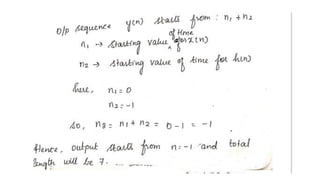 O/p sequence y(n) starts from : n₁ + n₂
n₁ → starting value of time for x(n)
n₂ → starting value of time for h(n)
here, n₁ = 0
n₂ = -1
so, n₃ = n₁ + n₂ = 0 - 1 = -1
Hence, output starts from n = -1 and total
length will be 7.